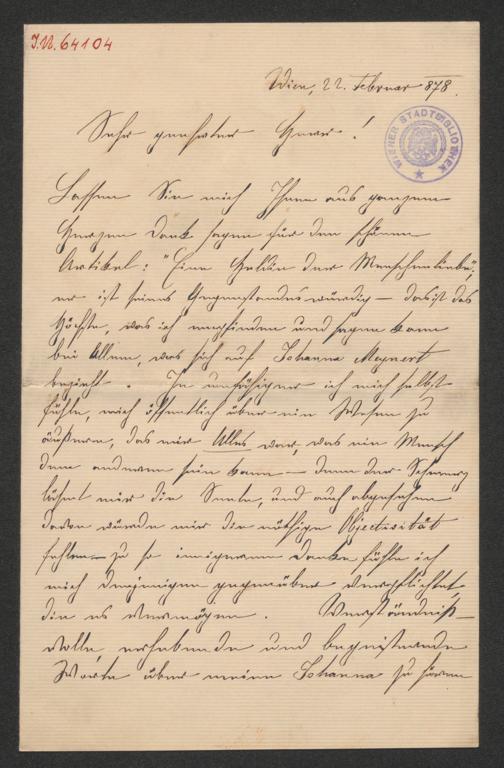 J.N. 64104
Wien, 22. Februar 878.
WIENER STADTBIBLIOTHEK
Sehr geehrter Herr!
Lassen Sie mich Ihnen aus ganzem
Herzen Dank sagen für den schönen
Artikel: "Eine Heldin der Menschenliebe",
er ist seines Gegenstandes würdig – das ist das
Höchste, was ich empfinden und sagen kann
bei Allem, was sich auf Johanna Meynert
bezieht. Je unfähiger ich mich selbst
fühle, mich öffentlich über ein Wesen zu
äußern, das mir Alles war, was ein Mensch
dem anderen sein kann – denn der Schmerz
lähmt mir die Seele, und auch abgesehen
davon würde mir die nöthige Objectivität
fehlen – zu so innigerem Danke fühle ich
mich denjenigen gegenüber verpflichtet,
die es vermögen. Verständniß-
volle, erhebende und begeisternde
Worte über meine Johanna zu hören